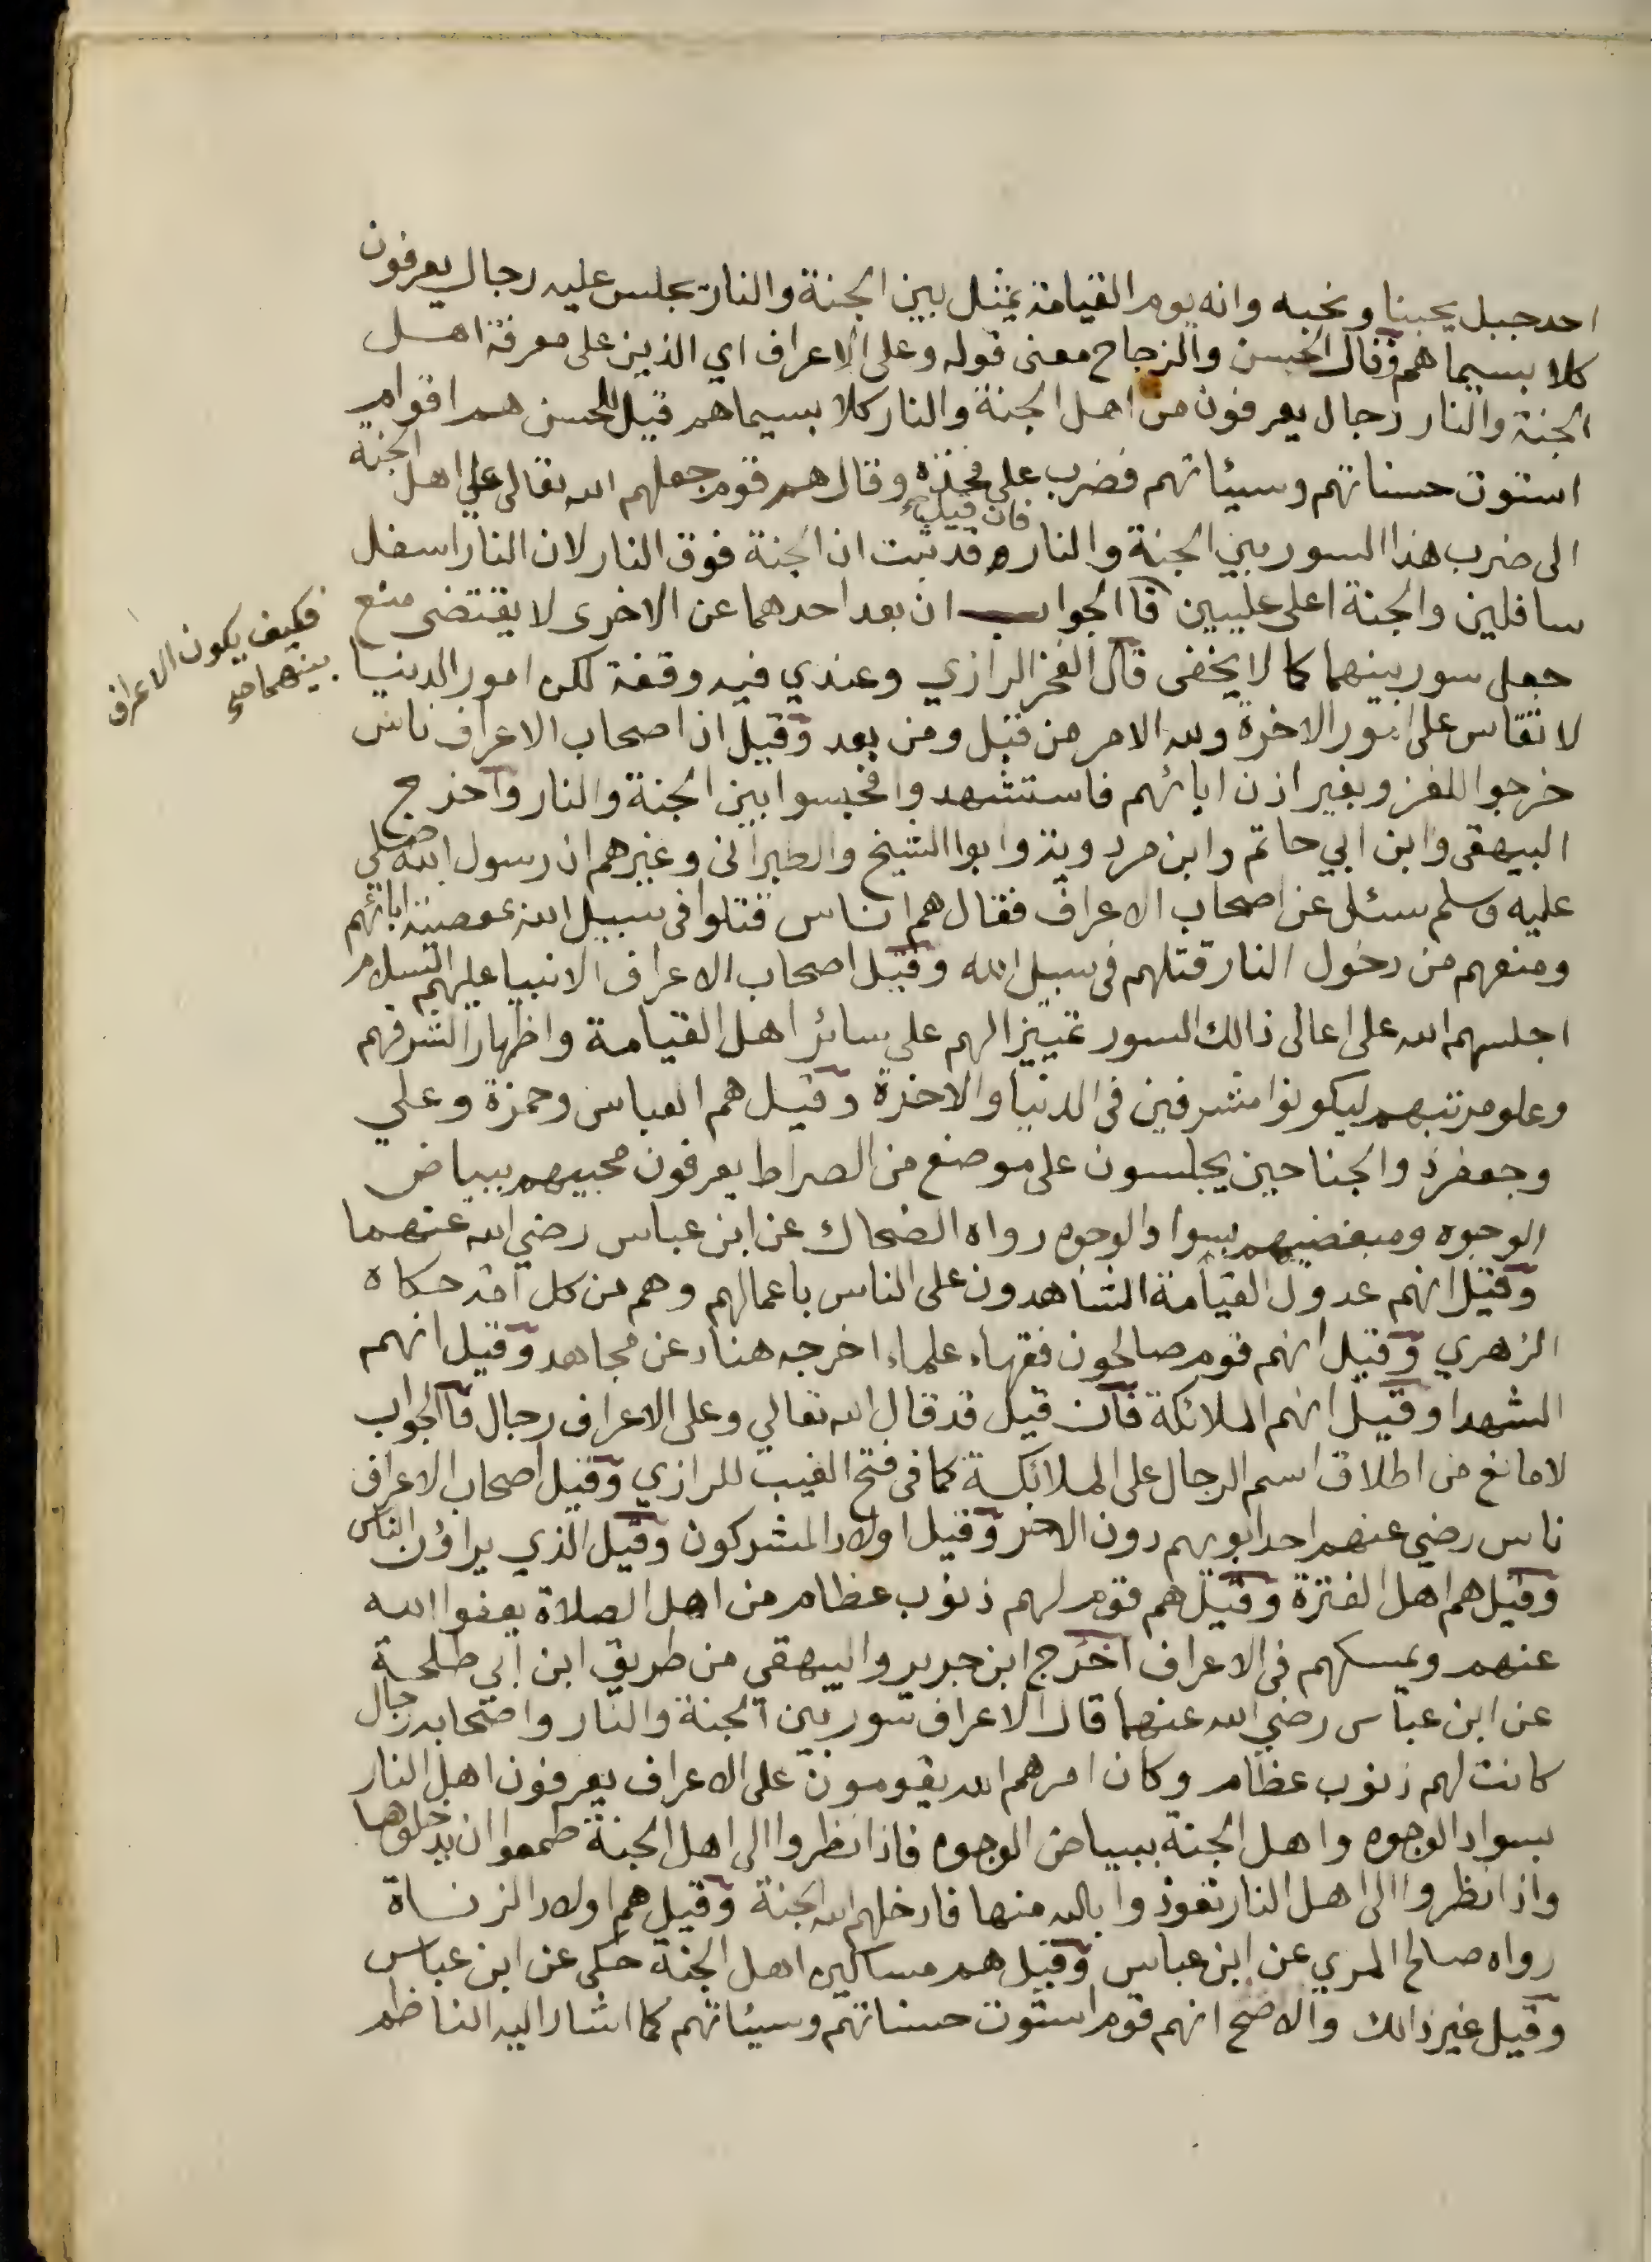 احد جبل يحبنا ونحبه وانه يوم القيامة يمثل بين الجنة والنار يجلس عليه رجال يعرفون
كلا بسيماهم وقال الحسن والزجاج معنى قوله وعلى الاعراف اي الذين على معرفة اهل
الجنة والنار رجال يعرفون من اهل الجنة والنار كلا بسيماهم قيل للحسن هم اقوام
استوت حسناتهم وسيئاتهم فضرب على فخذه وقال هم قوم جعلهم الله تعالى على اهل الجنة
فان قيل
الى ضرب هذا السور بين الجنة والنار وقد ثبت ان الجنة فوق النار لان النار اسفل
سافلين والجنة اعلى عليين فاالجواب ان بعد احدهما عن الاخرى لا يقتضى منع
فكيف يكون الاعراف
بينهما صح
جعل سور بينهما كما لا يخفى قال الفخر الرازي وعندي فيه وقفة لكن امور الدنيا
لا تقاس على امور الاخرة ولله الامر من قبل ومن بعد وقيل ان اصحاب الاعراف ناس
خرجوا للغزو بغير اذن ابائهم فاستشهدوا فحبسوا بين الجنة والنار واخرج
البيهقى وابن ابي حاتم وابن مردويه وابوا الشيخ والطبرانى وغيرهم ان رسول الله صلى
عليه وسلم سئل عن اصحاب الاعراف فقال هم اناس قتلوا فى سبيل الله بمعصية ابائهم
ومنعهم من دخول النار قتلهم فى سبيل الله وقيل اصحاب الاعراف الانبيا عليهم السلام
اجلسهم الله على اعالى ذالك السور تمييزا لهم على سائر اهل القيامة واظهارا لشرفهم
وعلو مرتبهم ليكونوا مشرفين فى الدنيا والاخرة وقيل هم العباس وحمزة وعلي
وجعفر ذوالجناحين يجلسون على موضع من الصراط يعرفون محبيهم ببياض
الوجوه ومبغضيهم بسواد الوجوه رواه الضحاك عن ابن عباس رضي الله عنهما
وقيل انهم عدول القيامة الشاهدون على الناس باعمالهم وهم من كل امة حكاه
الزهري وقيل انهم قوم صالحون فقهاء علماء اخرجه هناد عن مجاهد وقيل انهم
الشهدا وقيل انهم الملائكة فان قيل قد قال الله تعالي وعلى الاعراف رجال فاالجواب
لا مانع من اطلاق اسم الرجال على الملائكة كما فى فتح الغيب للرازي وقيل اصحاب الاعراف
ناس رضي عنهم احد ابويهم دون الاخر وقيل اولاد المشركون وقيل الذي يراؤن الناس
وقيل هم اهل الفترة وقيل هم قوم لهم ذنوب عظام من اهل الصلاة يعفوا الله
عنهم ويمسكهم فى الاعراف اخرج ابن جرير والبيهقى من طريق ابن ابي طلحة
عن ابن عباس رضي الله عنهما قال الاعراف سور بين الجنة والنار واصحابه رجال
كانت لهم ذنوب عظام وكان امرهم الله يقومون على الاعراف يعرفون اهل النار
بسواد الوجوه واهل الجنة ببياض الوجوه فاذا نظروا الى اهل الجنة طمعوا ان يدخلوها
واذا نظروا الى اهل النار تعوذوا بالله منها فادخلهم الله الجنة وقيل هم اولاد الزناة
رواه صالح المري عن ابن عباس وقيل هم مساكين اهل الجنة حكى عن ابن عباس
وقيل غير ذالك والاصح انهم قوم استوت حسناتهم وسيئاتهم كما اشار اليه الناظم